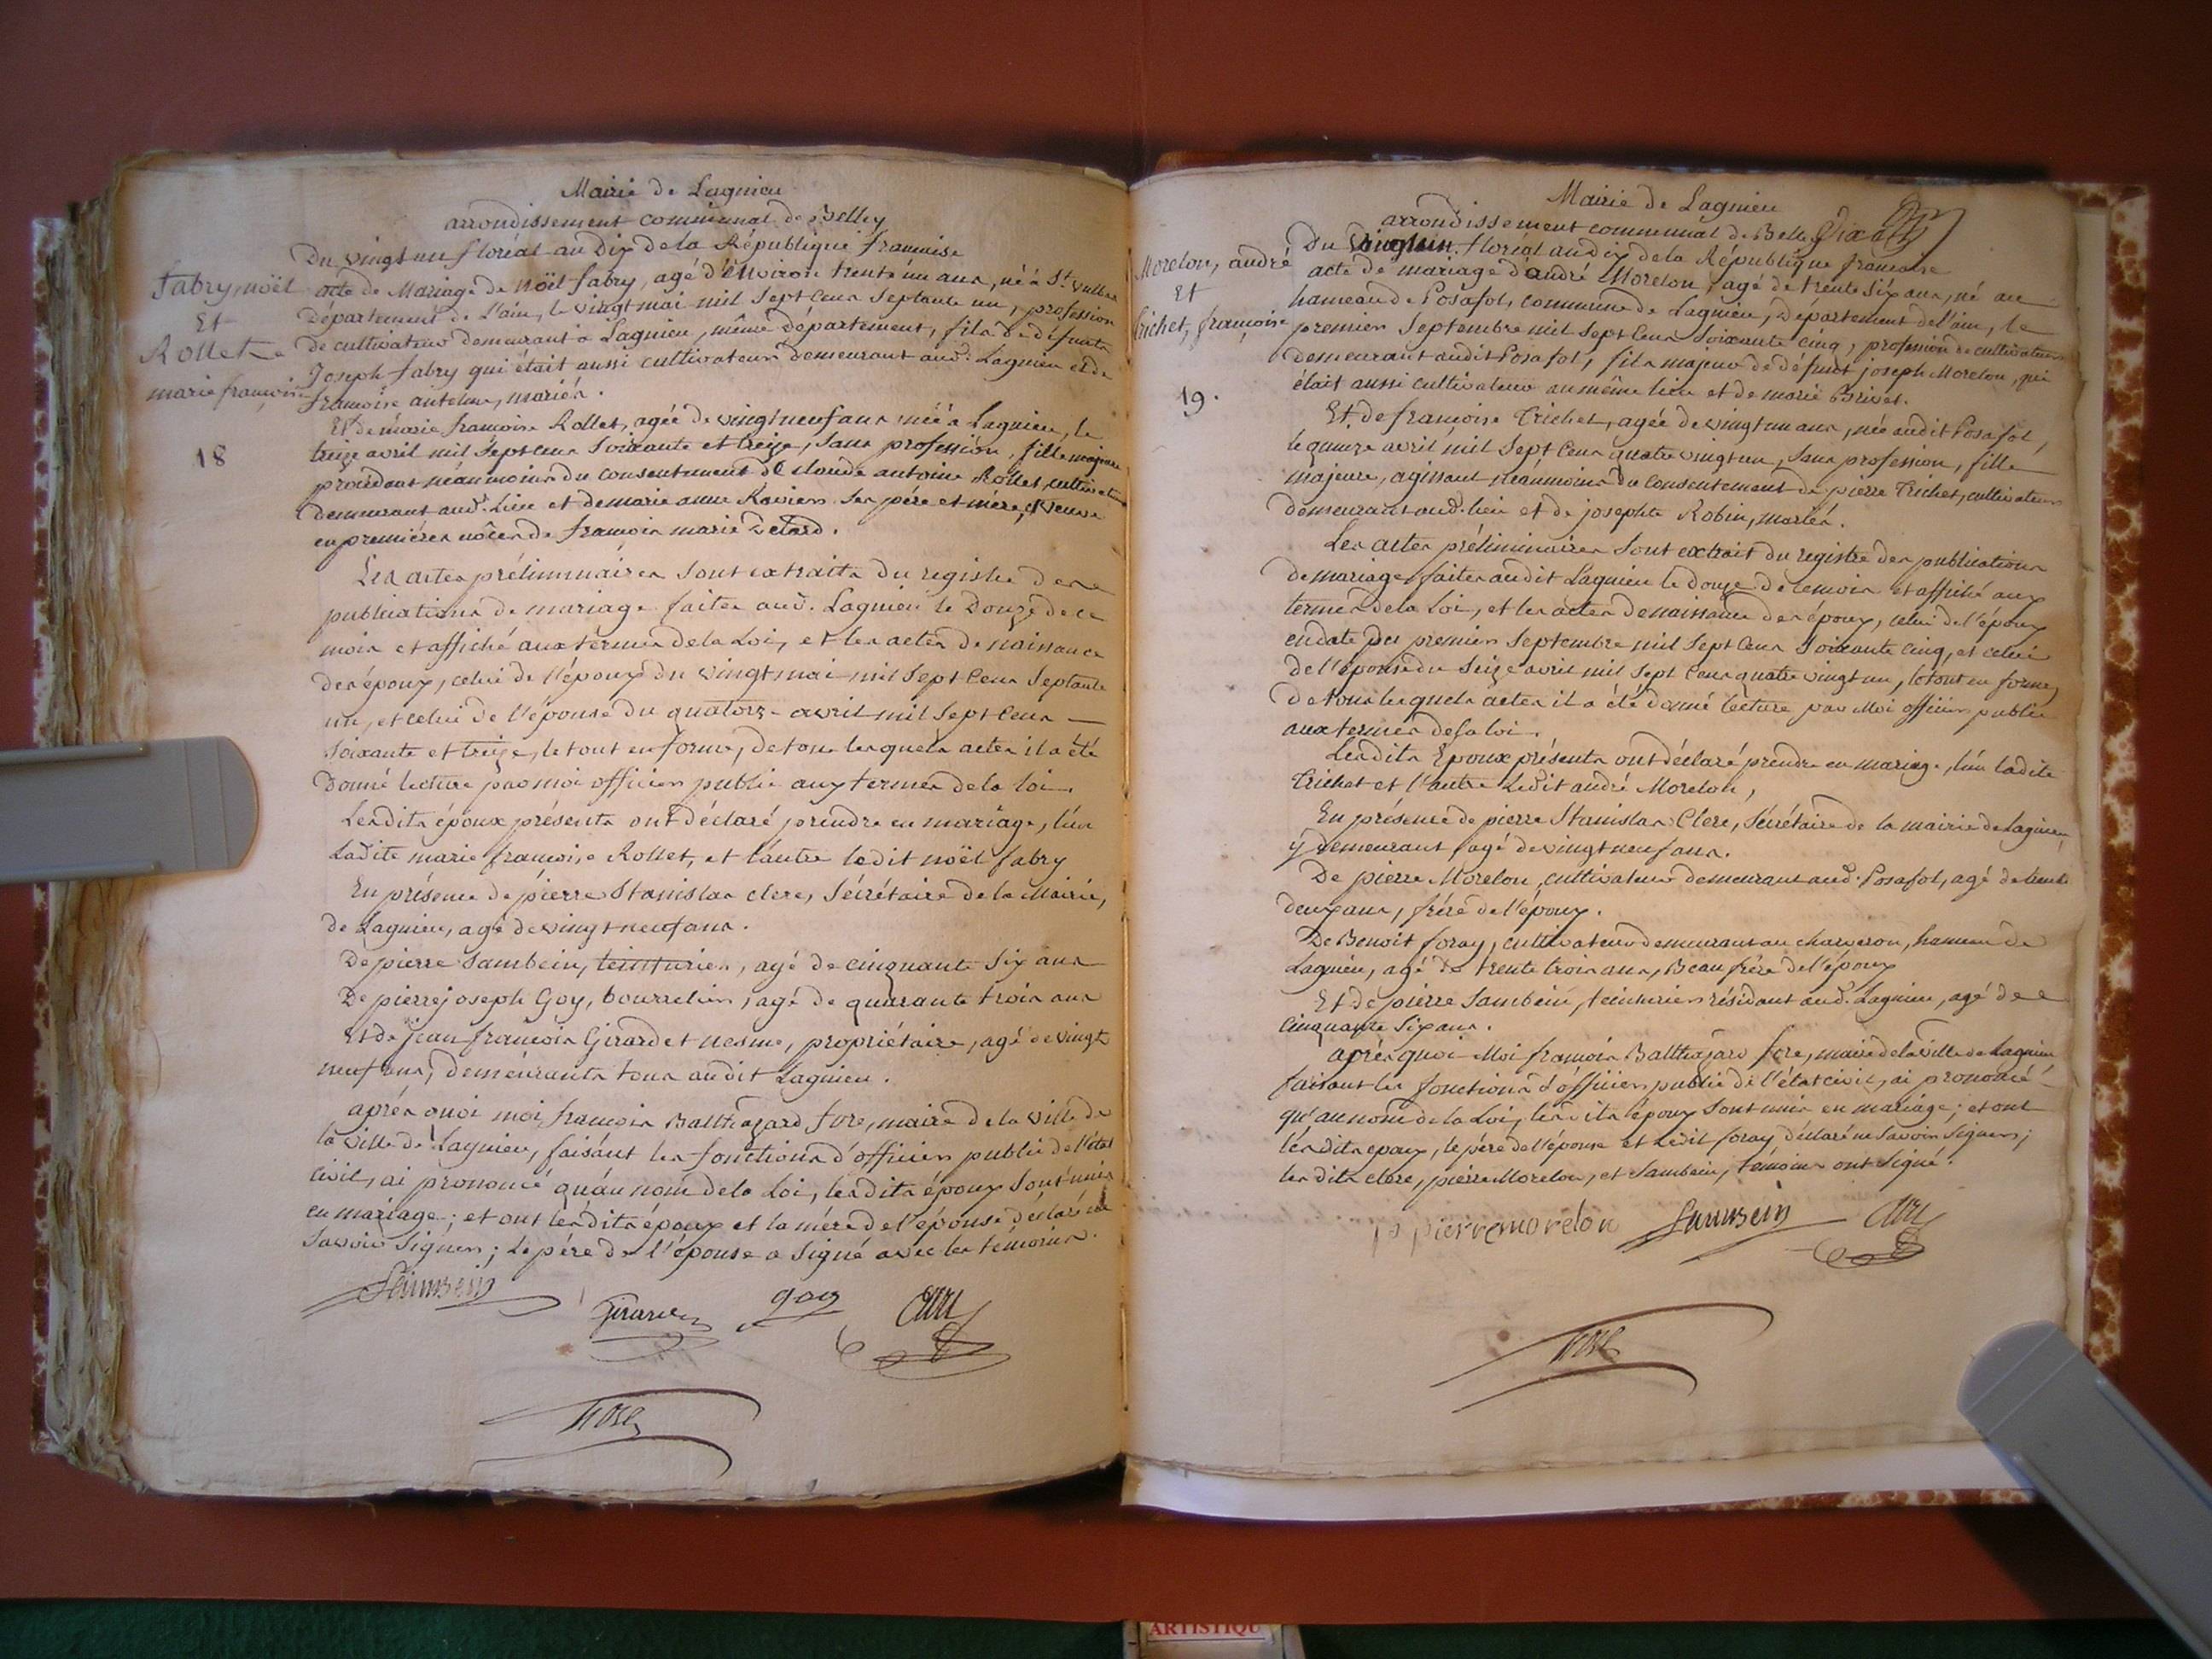 Mairie de Lagnieu
arrondissement communal de Belley
Du vingt un floréal an dix de la République francaise
fabry, noël
Et
Rollet
marie françoise
18
acte de Mariage de noël fabry, agé d'environ trente un ans, né à St. vulbas
Département de l'ain, le vingt mai mil sept cens septante un, profession
de cultivateur demeurant à Lagnieu, même département, fils de défunts
Joseph fabry qui était aussi cultivateur demeurant aud. Lagnieu et de
francoise antelme, mariés.
Et de marie francoise Rollet, agée de vingt neuf ans née à Lagnieu, le
treize avril mil sept cens soixante et treize, sans profession, fille majeure
procédant néanmoins du consentement de claude antoine Rollet, cultivateur
demeurant aud. lieu et de marie anne Ravier ses père et mère, et veuve
en premières nôces de francois marie
Les actes préliminaires sont extraits du registre des
publications de mariage faites aud. Lagnieu le Douze de ce
mois et affiché aux termes de la Loi, et les actes de naissance
des époux, celui de l'époux du vingt mai mil sept cens septante
un, et celui de l'épouse du quatorze avril mil sept cens
soixante et treize, le tout en forme, de tous lesquels actes il a été
Donné lecture par moi officier public aux termes de la loi.
Lesdits époux présents ont déclaré prendre en mariage, l'un
Ladite marie françoise Rollet, et l'autre ledit noël fabry
En présence de pierre Stanislas clerc, Sécrétaire de la Mairie,
de Lagnieu, agé de vingt neuf ans.
De pierre Sambein, teinturier, agé de cinquante six ans
De pierre joseph Goy, bourrelier, agé de quarante trois ans
Et de jean francois Girardet nesme, propriétaire, agé de vingt
neuf ans, demeurants tous audit Lagnieu.
après quoi moi, francois Balthazard fore, maire de la ville de
la ville de Lagnieu, faisant les fonctions d'officier public de l'état
civil, ai prononcé qu'au nom de la Loi, lesdits époux sont unis
en mariage; et ont lesdits époux et la mère de l'épouse déclaré ne
savoir signer; Le père de l'épouse a signé avec les témoins.
Sambein
Girardet
goy
Clerc
fore
Mairie de Lagnieu
arrondissement communal de Belley Dix
Du vingt un floréal an dix de la République francaise
Morelon, andré
Et
trichet, françoise
19.
acte de mariage d'andré Morelon, agé de trente six ans, né au
hameau de Posafol, commune de Lagnieu, Département de l'ain, le
premier septembre mil sept cens soixante cinq, profession de cultivateur
demeurant audit Posafol, fils majeur de défunt joseph Morelon, qui
était aussi cultivateur au même lieu et de marie Brivet.
Et de francoise Trichet, agée de vingt un ans, née audit Posafol,
le quinze avril mil sept cens quatre vingt un, sans profession, fille
majeure, agissant néanmoins du consentement de pierre Trichet, cultivateur
demeurant aud. lieu et de josephte Robin, mariés.
Les actes préliminaires sont extrait du registre des publications
de mariage faites audit Lagnieu le douze de ce mois et affiché aux
termes de la Loi, et les actes de naissance des époux, celui de l'époux
en date du premier septembre mil sept cens soixante cinq, et celui
de l'épouse du seize avril mil sept cens quatre vingt un, le tout en forme,
de tous lesquels actes il a été donné lecture par Moi officier public
aux termes de la loi.
Lesdits Epoux présents ont déclaré prendre en mariage, l'un ladite
Trichet et l'autre Ledit andré Morelon,
En présence de pierre Stanislas Clerc, sécrétaire de la mairie de Lagnieu,
y demeurant, agé de vingt neuf ans.
De pierre Morelon, cultivateur demeurant aud. Posafol, agé de trente
deux ans, frère de l'époux.
De Benoit foray, cultivateur demeurant au charveron, hameau de
Lagnieu, agé de trente trois ans, Beau frère de l'époux
Et de pierre Sambein, teinturier résidant aud. Lagnieu, agé de
cinquante six ans.
après quoi Moi francois Balthazard fore, maire de la ville de Lagnieu
faisant les fonctions d'officier public de l'état civil, ai prononcé
qu'au nom de la Loi, lesdits époux sont unis en mariage; et ont
lesdits epoux, le père de l'épouse et Ledit foray déclaré ne savoir signer;
lesdits clerc, pierre Morelon, et Sambein, témoins ont signé.
pierre morelon
Sambein
Clerc
fore
ARTISTIQU